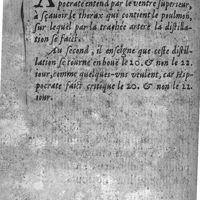 Apocrate entend par le ventre superieur,
à sçauoir le thorax qui contient le poulmon,
sur lequel par la trachée artere la distillation
se faict.
Au second, il enseigne que ceste distillation
se tourne en bouë le 20. & non le 22.
iour, comme quelques-vns veulent, car Hippocrate
faict critique le 20. & non le 22.
iour.